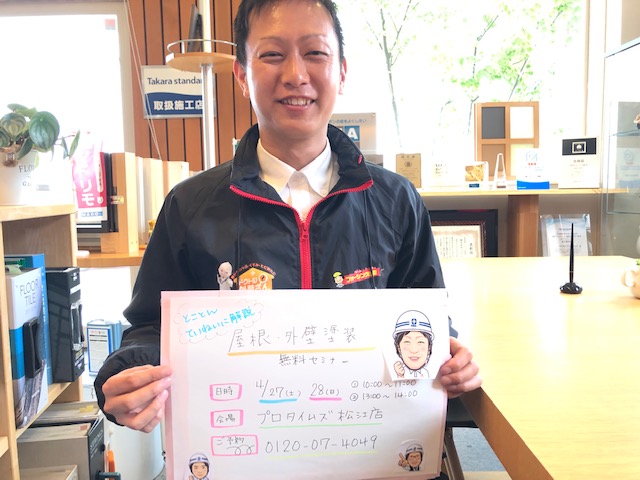 Takara standard
取扱施工店
FLOOR TILE
とことん
ていねいに解説
屋根・外壁塗装
無料セミナー
日時 4/27(土) 28(日) ①10:00~11:00
②13:00~14:00
会場 プロタイムズ松江店
ご予約 0120-07-4049